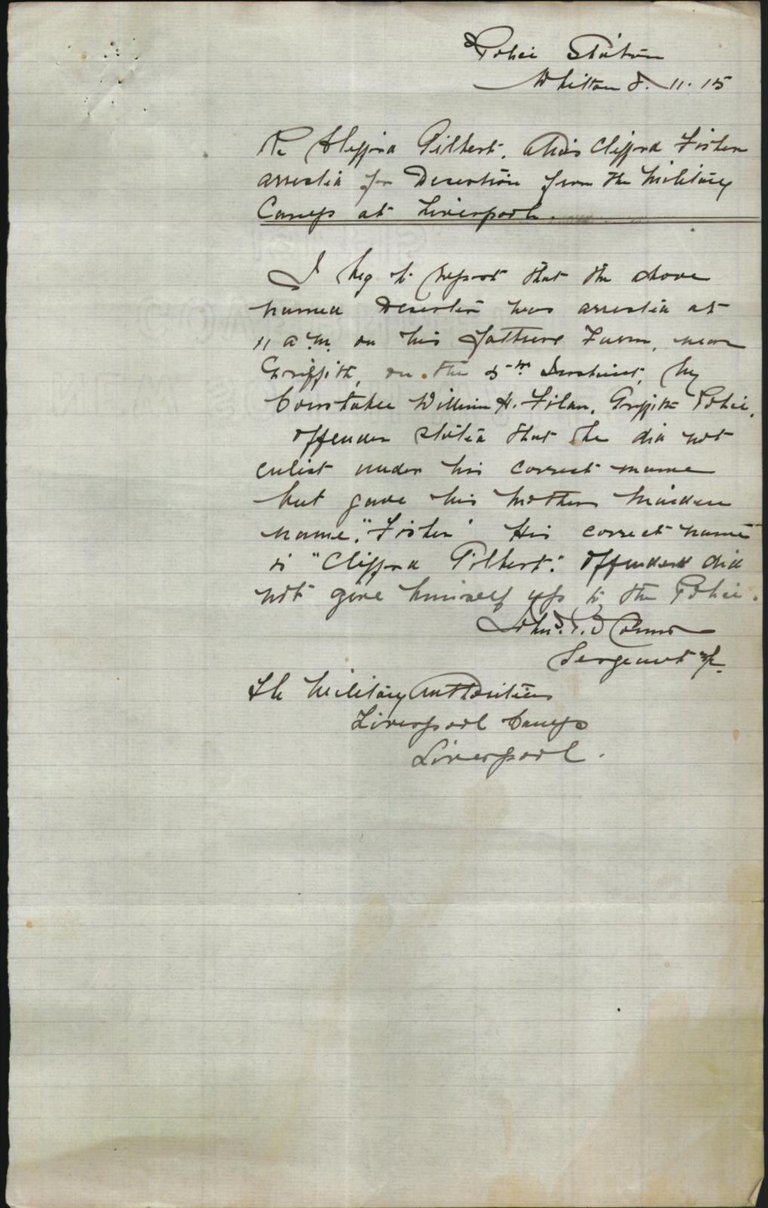 Police Station
Whitton 8. 11. 15
Re Clifford Gilbert, alias Clifford Foster
arrested for Desertion from the Military
Camp at Liverpool.
I beg to report that the above
named Deserter was arrested at
11 a.m. on his fathers Farm, near
Griffith, on the 5th Instant, by
Constable William H. Filan, Griffith Police.
Offender stated that he did not
enlist under his correct name
but gave his mothers maiden
name, "Foster" His correct name
is "Clifford Gilbert". Offender did
not give himself up to the Police.
John
Sergeant
The Military Authorities
Liverpool Camp
Liverpool.